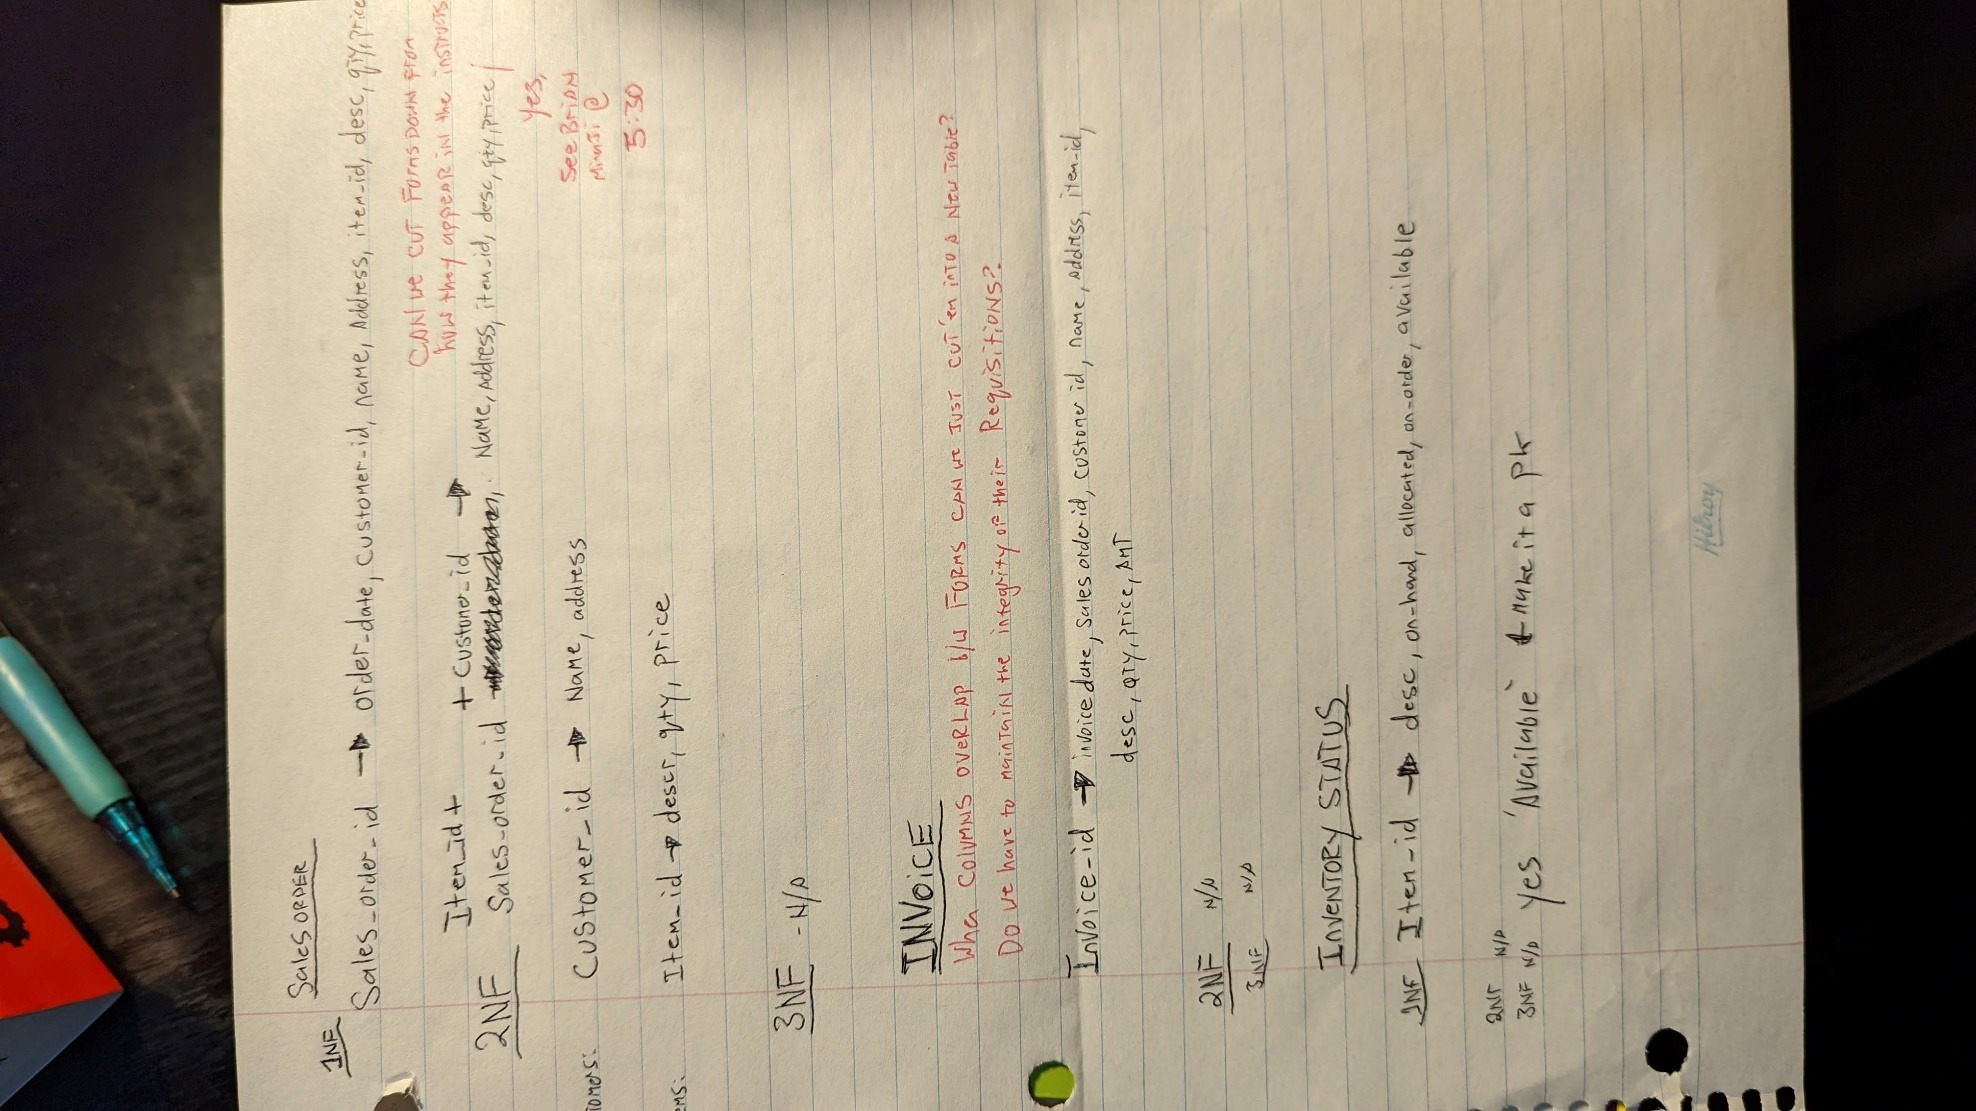 Sales ORDER
1NF
Sales_order_id → order-date, customer-id, name, Address, item-id, desc, qty, price
CAN we CUT FORMS DOWN from
how they appear in the instructs
Item_id + + Customer_id →
2NF Sales-order-id Name, Address, item-id, desc, qty, price /
yes,
See BRIAN
@
5:30
tomers: Customer_id → Name, address
ems: Item_id → descr, qty, price
3NF - N/A
INVOICE
When COLUMNS OVERLAP b/w FORMS CAN we JUST CUT 'em INTO A New Table?
Do we have to maintain the integrity of their Requisitions?
Invoice-id → invoice date, sales order id, customer id, name, address, item-id,
desc, QTY, price, AMT
2NF N/A
3NF N/A
INVENTORY STATUS
1NF Item-id → desc, on-hand, allocated, on-order, available
2NF N/A
3NF N/A yes 'Available' ← make it a pk
Hilroy